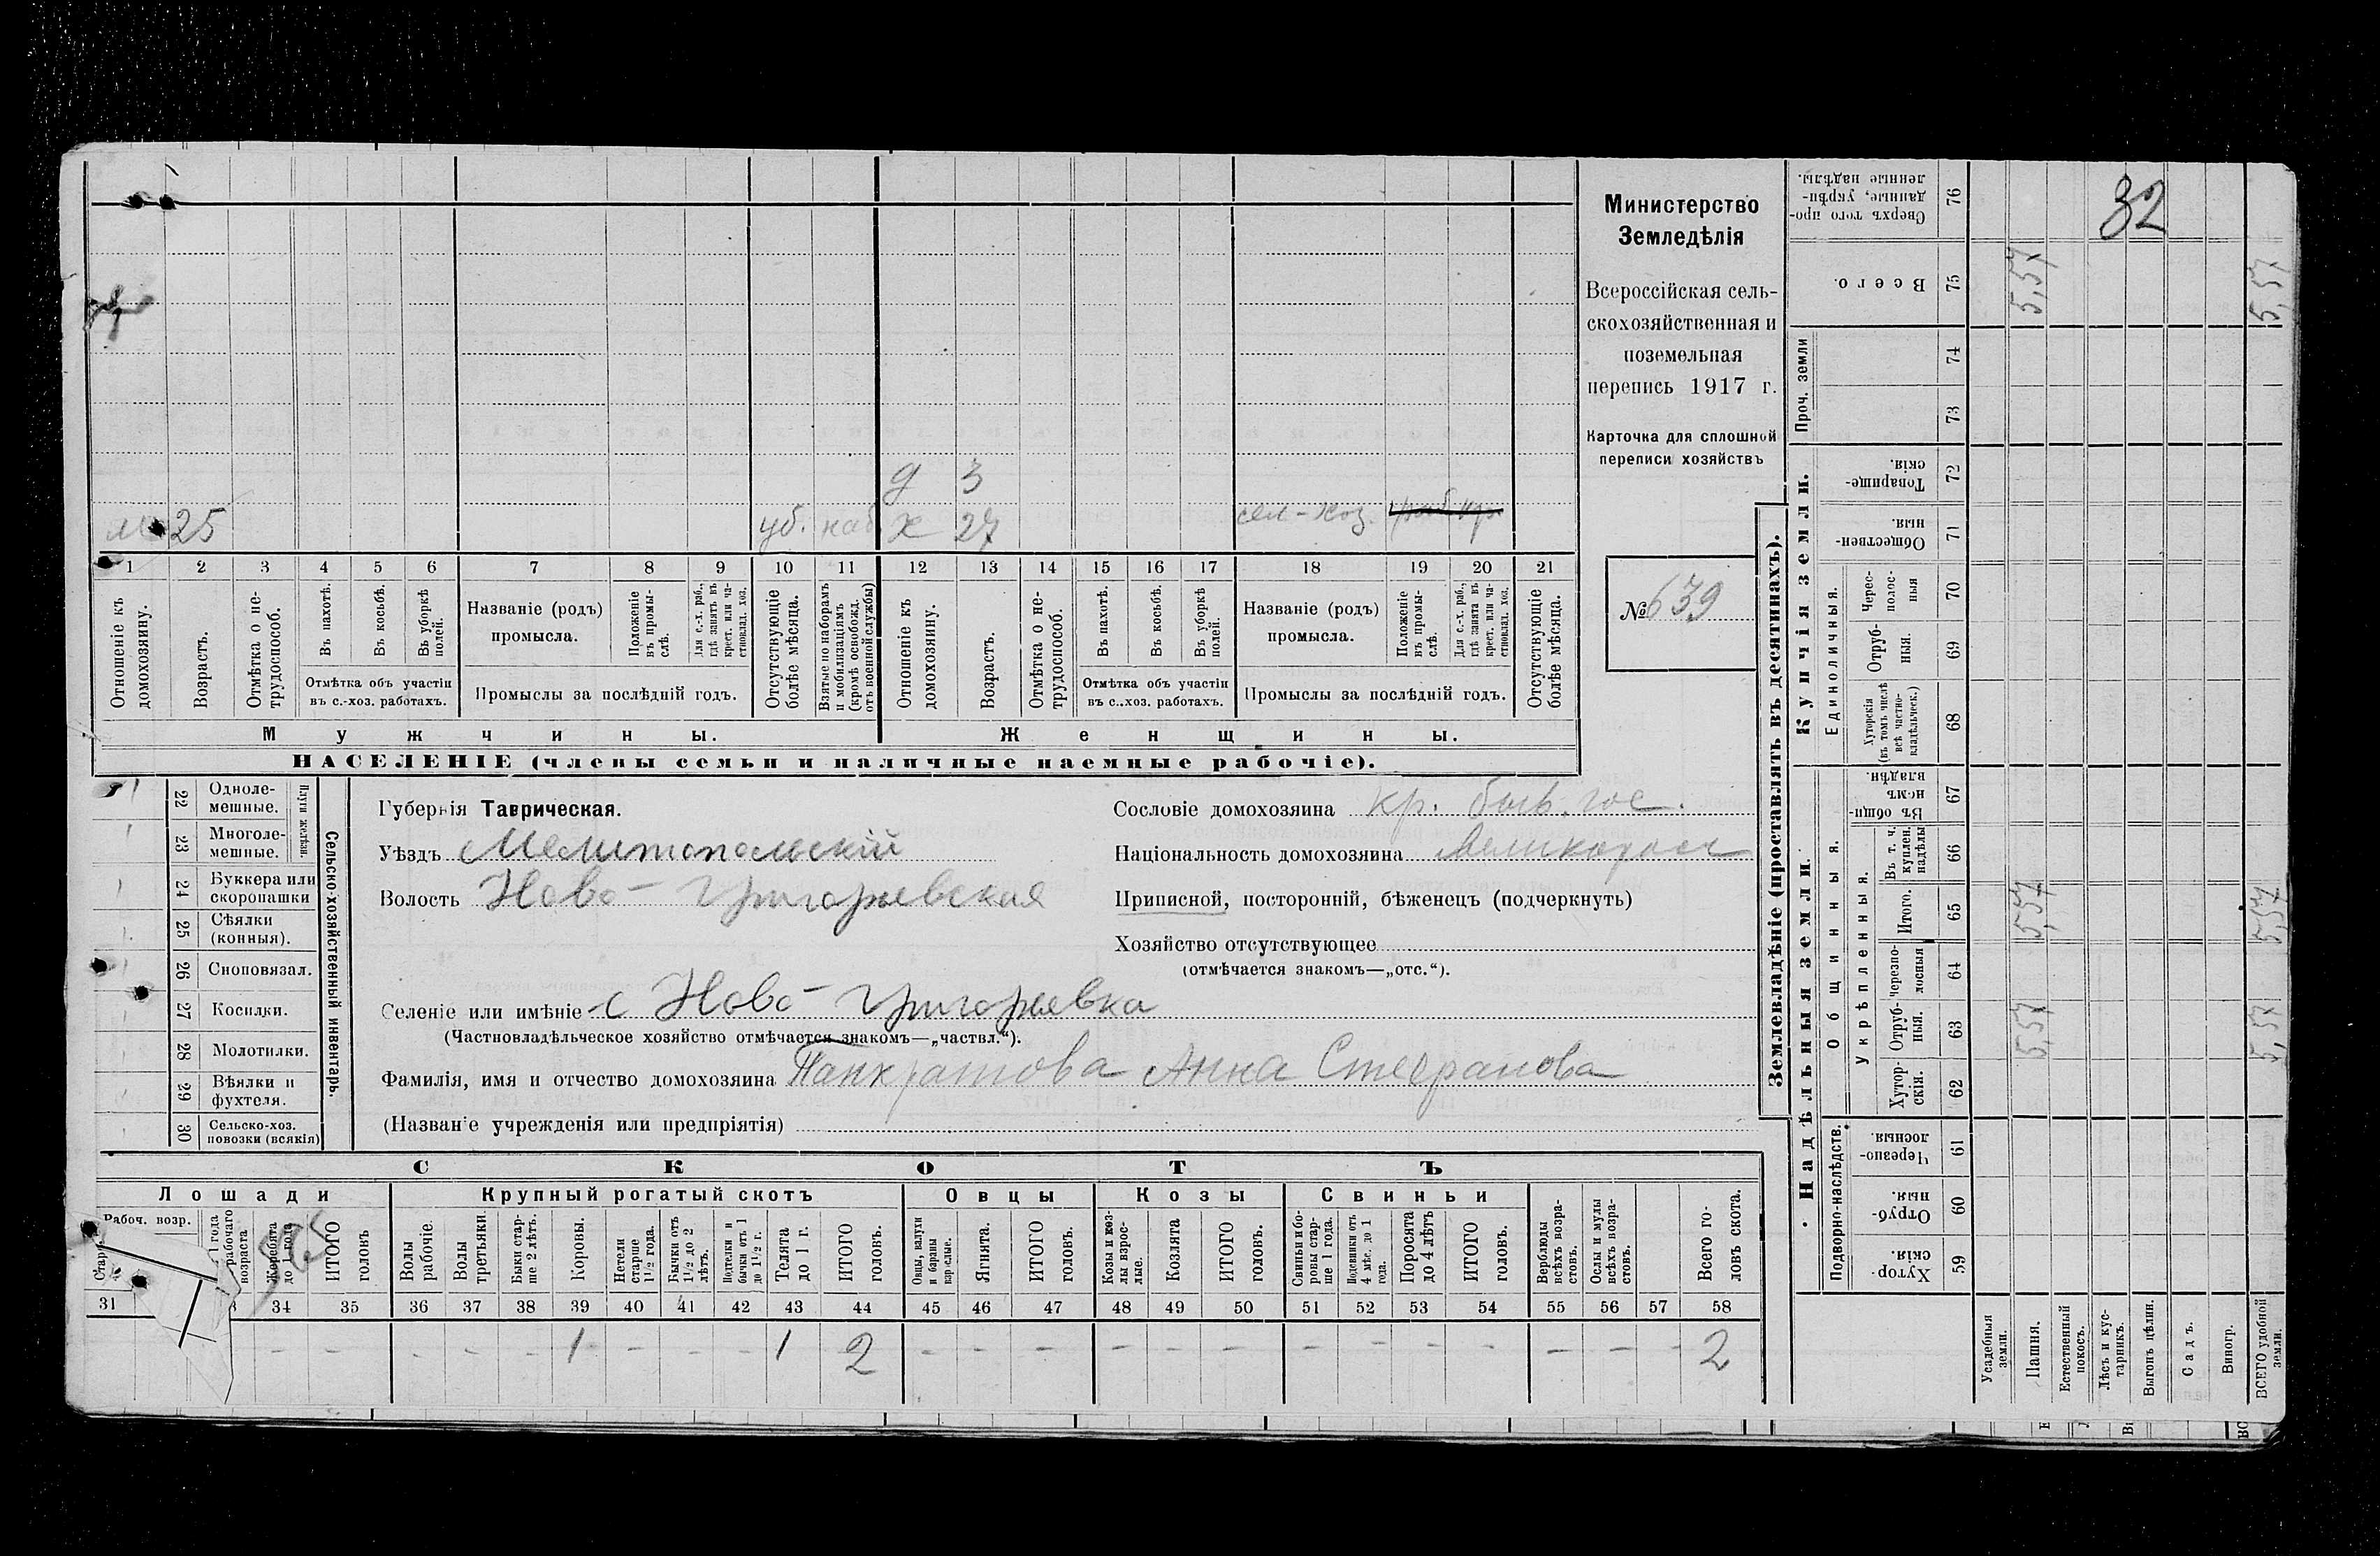 32
Министерство
Земледѣлія
Всероссійская сель-
скохозяйственная и
поземельная
перепись 1917 г.
Карточка для сплошной
переписи хозяйствъ
№ 639
д 3
м 25 уб. наб х 27 сел-хоз.
1 2 3 4 5 6 7 8 9 10 11 12 13 14 15 16 17 18 19 20 21
Отношеніе къ домохозяину.
Возрастъ.
Отмѣтка о не-трудоспособ.
Въ пахотѣ.
Въ косьбѣ.
Въ уборкѣ полей.
Отмѣтка объ участіи
въ с.-хоз. работахъ.
Названіе (родъ)
промысла.
Положеніе въ промы-слѣ.
Для с.-х. раб., гдѣ занятъ въ крест. или ча-стновлад. хоз.
Промыслы за послѣдній годъ.
Отсутствующіе болѣе мѣсяца.
Взятые по наборамъ и мобилизаціямъ (кромѣ освобожд. отъ военной службы)
Отношеніе къ домохозяину.
Возрастъ.
Отмѣтка о не-трудоспособ.
Въ пахотѣ.
Въ косьбѣ.
Въ уборкѣ полей.
Отмѣтка объ участіи
въ с.-хоз. работахъ.
Названіе (родъ)
промысла.
Положеніе въ промы-слѣ.
Для с.-х. раб., гдѣ занята въ крест. или ча-стновлад. хоз.
Промыслы за послѣдній годъ.
Отсутствующіе болѣе мѣсяца.
Мужчины. Женщины.
НАСЕЛЕНІЕ (члены семьи и наличные наемные рабочіе).
Сельско-хозяйственный инвентарь.
Плуги желѣзн.
22 Одноле-мешные.
23 Многоле-мешные.
24 Буккера или скоропашки
25 Сѣялки (конныя).
26 Сноповязал.
27 Косилки.
28 Молотилки.
29 Вѣялки и фухтеля.
30 Сельско-хоз. повозки (всякія)
Губернія Таврическая.
Уѣздъ Мелитопольскій
Волость Ново-Григорьевская
Сословіе домохозяина кр. быв. гос.
Національность домохозяина великоросс
Приписной, посторонній, бѣженецъ (подчеркнуть)
Хозяйство отсутствующее
(отмѣчается знакомъ—„отс.“).
Селеніе или имѣніе с Ново-Григорьевка
(Частновладѣльческое хозяйство отмѣчается знакомъ—„частвл.“).
Фамилія, имя и отчество домохозяина Панкратова Анна Стефанова
(Названіе учрежденія или предпріятія)
СКОТЪ
Лошади Крупный рогатый скотъ Овцы Козы Свиньи
Рабоч. возр.
1 года рабочаго возраста
Жеребята до 1 года
ИТОГО головъ
Волы рабочіе.
Волы третьяки.
Быки стар-ше 2 лѣтъ.
Коровы.
Нетели старше 1½ года.
Бычки отъ 1½ до 2 лѣтъ.
Подтелки и бычки отъ 1 до 1½ г.
Телята до 1 г.
ИТОГО головъ.
Овцы, валухи и бараны взрослые.
Ягнята.
ИТОГО головъ.
Козы и коз-лы взрос-лые.
Козлята
ИТОГО головъ.
Свиньи и бо-ровы стар-ше 1 года.
Подсвинки отъ 4 мѣс. до 1 года.
Поросята до 4 лѣтъ
ИТОГО головъ.
Верблюды всѣхъ возра-стовъ.
Ослы и мулы всѣхъ возра-стовъ.
Всего го-ловъ скота.
31 34 35 36 37 38 39 40 41 42 43 44 45 46 47 48 49 50 51 52 53 54 55 56 57 58
- - - - - 1 - - - 1 2 - - - - - - - - - - - - - 2
Землевладѣніе (проставлять въ десятинахъ).
Купчія земли.
Надѣльныя земли.
Сверхъ того про-данные, укрѣп-ленные надѣлы. 76
Всего. 75 5,57 5,57
Проч. земли 74
73
Товарище-скія. 72
Обществен-ныя. 71
Единоличныя.
Черес-полос-ныя 70
Отруб-ныя. 69
Хуторскія (въ томъ числѣ всѣ частно-владѣльческ.) 68
Общинныя.
Въ общи-номъ владѣн. 67
Укрѣпленныя.
Въ т. ч. куплен. надѣлы 66
Итого. 65 5,57 5,57
черезпо-лосныя 64
Отруб-ныя. 63 5,57 5,57
Хутор-скія. 62
Подворно-наслѣдств.
Черезпо-лосныя. 61
Отруб-ныя. 60
Хутор-скія. 59
Усадебныя земли.
Пашня.
Естественный покосъ.
Лѣсъ и кус-тарникъ.
Выгонъ цѣлин.
Садъ.
Виногр.
ВСЕГО удобной земли.